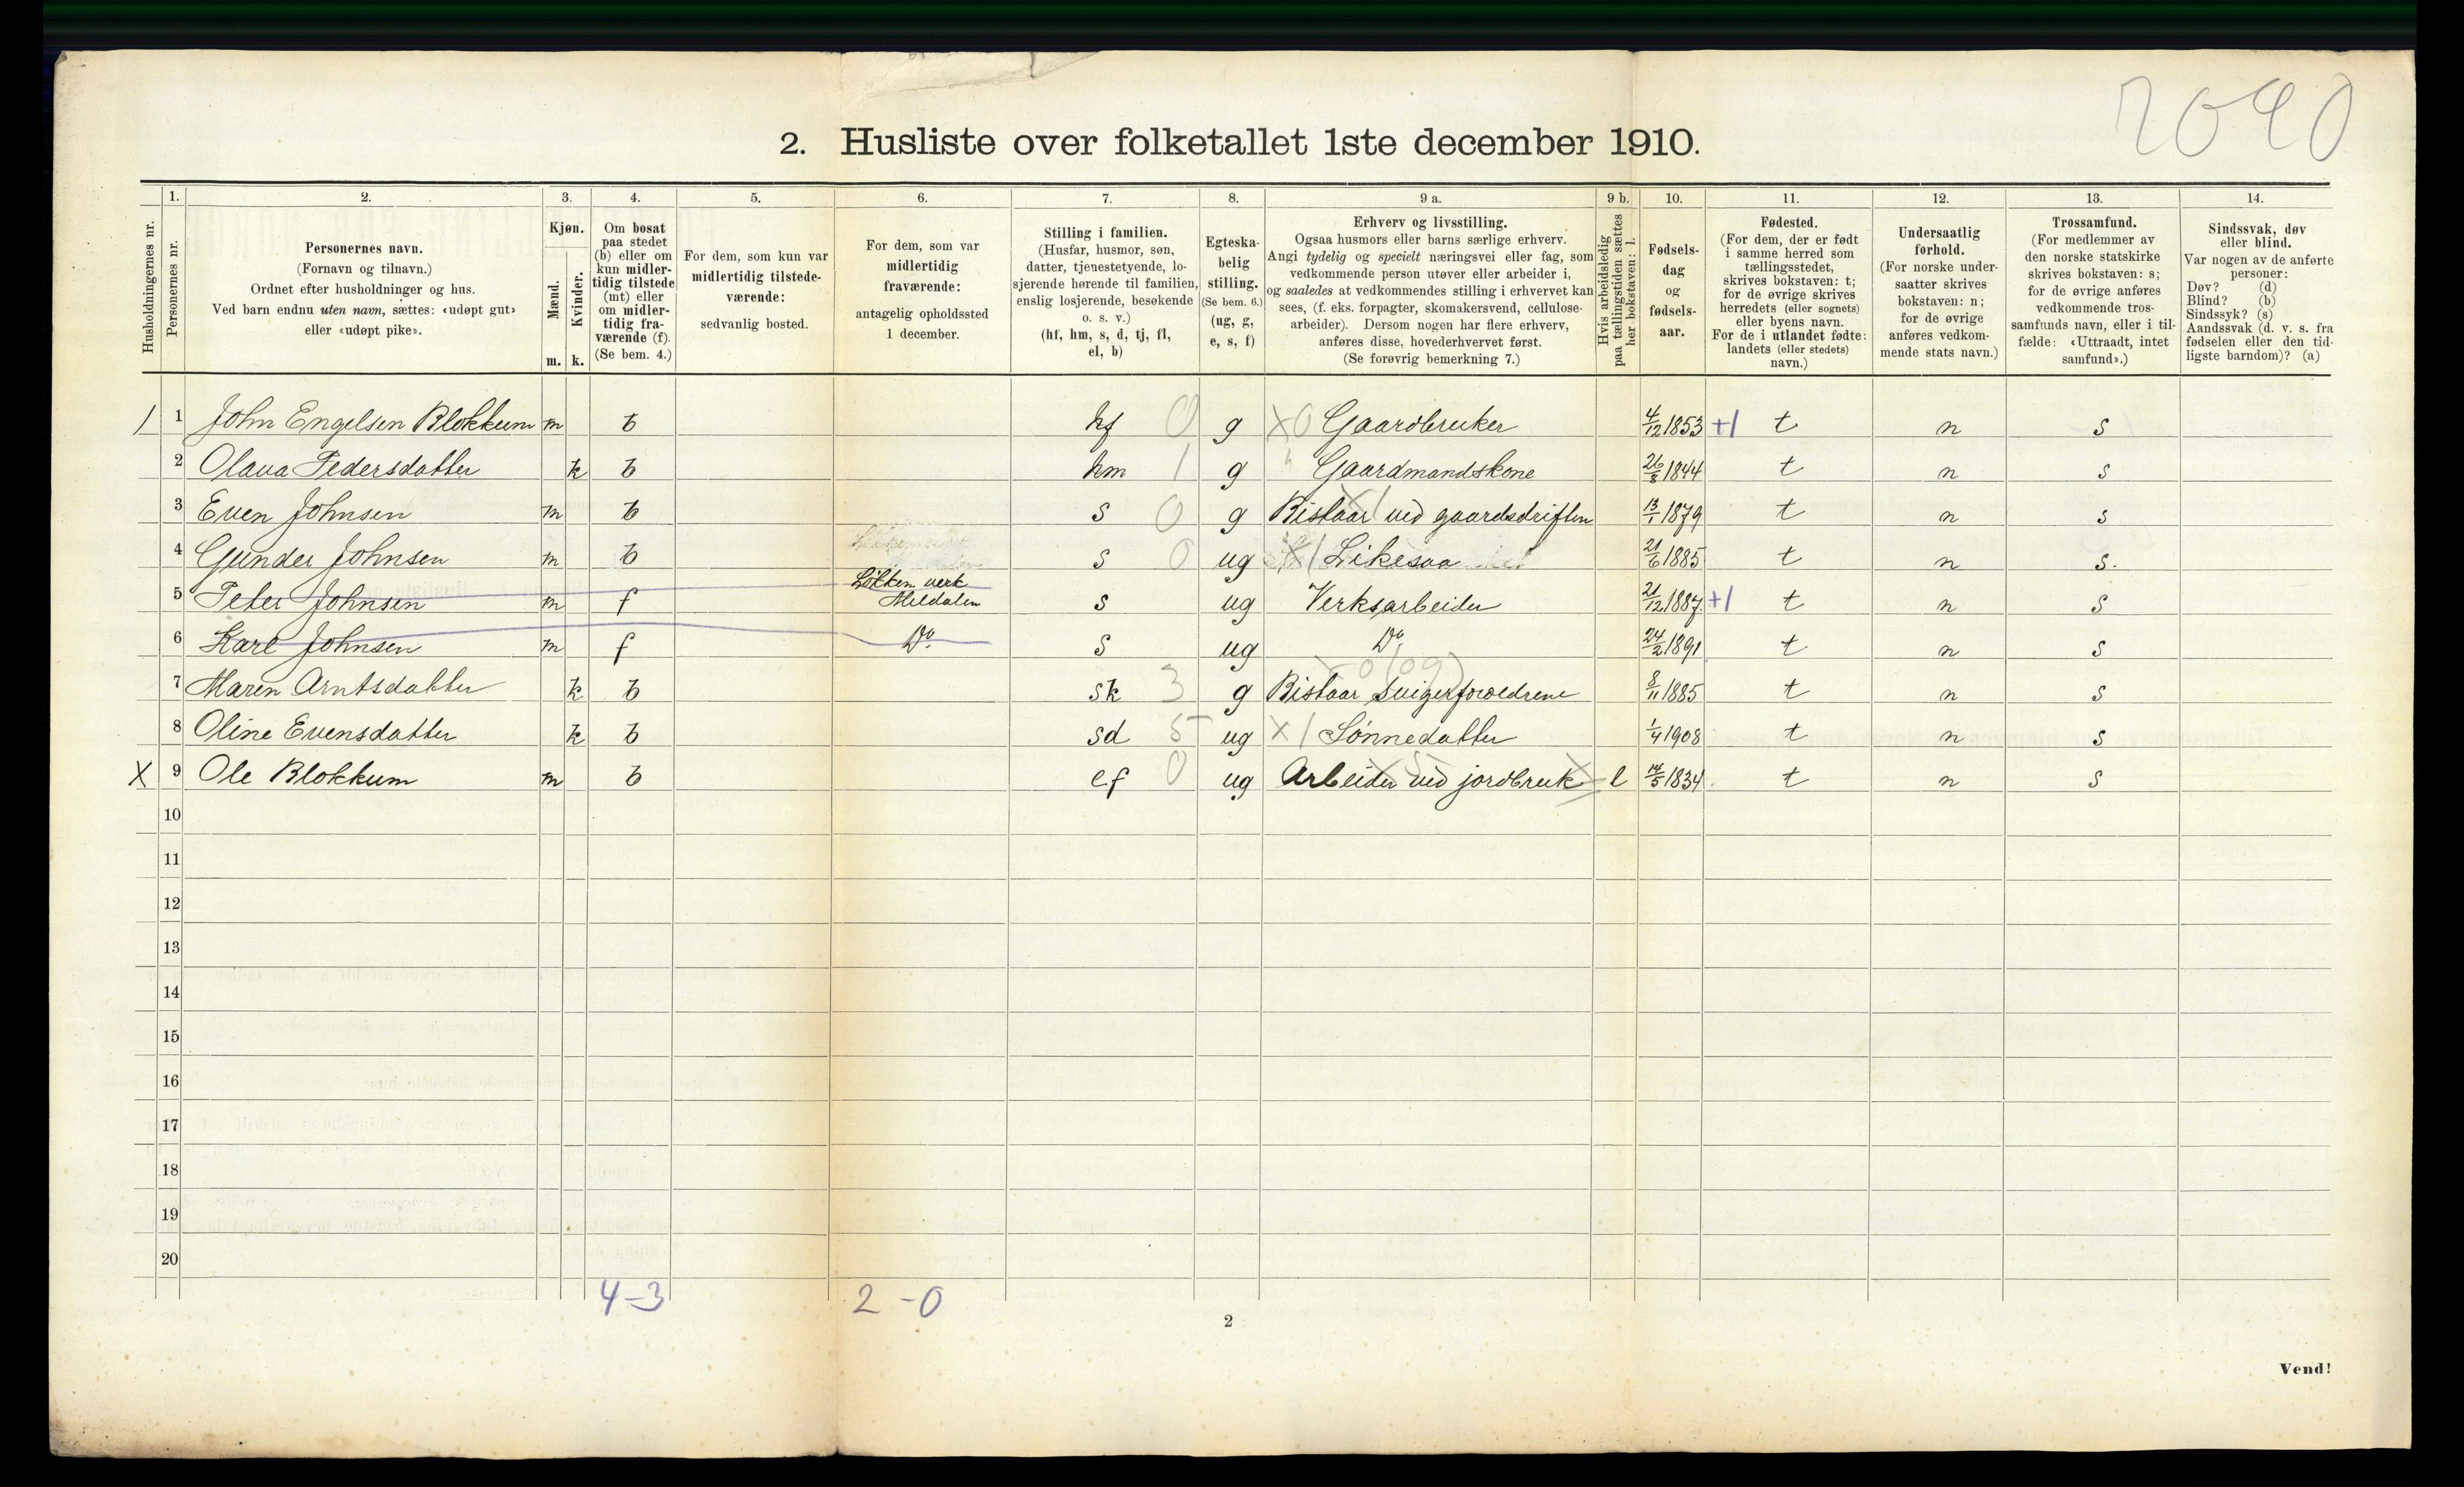 2040
2. Husliste over folketallet 1ste december 1910.
Husholdningernes nr.
1.
Personernes nr.
2.
Personernes navn.
(Fornavn og tilnavn.)
Ordnet efter husholdninger og hus.
Ved barn endnu uten navn, sættes: «udøpt gut»
eller «udøpt pike».
3.
Kjøn.
Mænd.
m.
Kvinder.
k.
4.
Om bosat
paa stedet
(b) eller om
kun midler-
tidig tilstede
(mt) eller
om midler-
tidig fra-
værende (f).
(Se bem. 4.)
5.
For dem, som kun var
midlertidig tilstede-
værende:
sedvanlig bosted.
6.
For dem, som var
midlertidig
fraværende:
antagelig opholdssted
1 december.
7.
Stilling i familien.
(Husfar, husmor, søn,
datter, tjenestetyende, lo-
sjerende hørende til familien,
enslig losjerende, besøkende
o. s. v.)
(hf, hm, s, d, tj, fl,
el, b)
8.
Egteska-
belig
stilling.
(Se bem. 6.)
(ug, g,
e, s, f)
9 a.
Erhverv og livsstilling.
Ogsaa husmors eller barns særlige erhverv.
Angi tydelig og specielt næringsvei eller fag, som
vedkommende person utøver eller arbeider i,
og saaledes at vedkommendes stilling i erhvervet kan
sees, (f. eks. forpagter, skomakersvend, cellulose-
arbeider). Dersom nogen har flere erhverv,
anføres disse, hovederhvervet først.
(Se forøvrig bemerkning 7.)
9 b.
Hvis arbeidsledig
paa tællingstiden sættes
her bokstaven: l.
10.
Fødsels-
dag
og
fødsels-
aar.
11.
Fødested.
(For dem, der er født
i samme herred som
tællingsstedet,
skrives bokstaven: t;
for de øvrige skrives
herredets (eller sognets)
eller byens navn.
For de i utlandet fødte:
landets (eller stedets)
navn.)
12.
Undersaatlig
forhold.
(For norske under-
saatter skrives
bokstaven: n;
for de øvrige
anføres vedkom-
mende stats navn.)
13.
Trossamfund.
(For medlemmer av
den norske statskirke
skrives bokstaven: s;
for de øvrige anføres
vedkommende tros-
samfunds navn, eller i til-
fælde: «Uttraadt, intet
samfund».)
14.
Sindssvak, døv
eller blind.
Var nogen av de anførte
personer:
Døv? (d)
Blind? (b)
Sindssyk? (s)
Aandssvak (d. v. s. fra
fødselen eller den tid-
ligste barndom)? (a)
/ 1 John Engelsen Blokkum m b hf 0 g X0 Gaardbruker 4/12 1853 +1 t n s
2 Olava Pedersdatter k b hm 1 g " Gaardmandskone 26/8 1844 t n s
3 Even Johnsen m b s 0 g X1 Bistaar ved gaardsdriften 13/1 1879 t n s
4 Gunder Johnsen m b s 0 ug X1 Likesaa 21/6 1885 t n s.
5 Peter Johnsen m f Løkken verk Meldalen s ug Verksarbeider 21/12 1887. +1 t n s
6 Karl Johnsen m f Do. s ug Do. 24/2 1891 t n s
7 Maren Arntsdatter k b sk 3 g Bistaar svigerforældrene 8/11 1885 t n s
8 Oline Evensdatter k b sd 5 ug X1 Sønnedatter 1/4 1908 t n s
X 9 Ole Blokkum m b ef 0 ug Arbeider ved jordbruk l 14/5 1834. t n s
10
11
12
13
14
15
16
17
18
19
20
4-3 2-0
2
Vend!